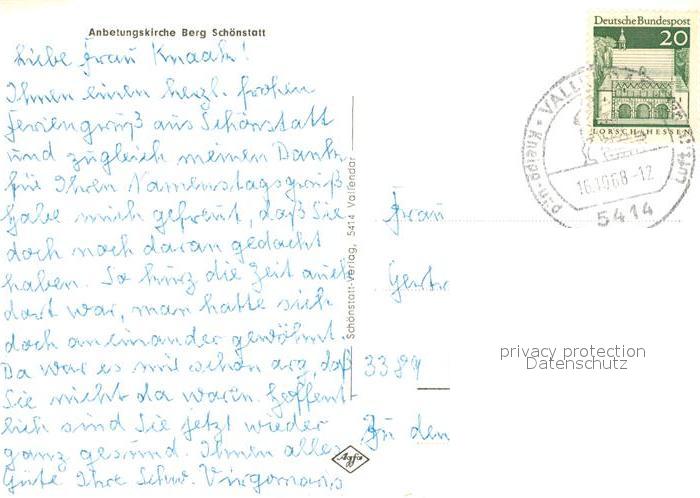 Anbetungskirche Berg Schönstatt
Liebe Frau Knaak!
Ihnen einen herzl. frohen
Feriengruß aus Schönstatt
und zugleich meinen Dank
für Ihren Namenstagsgruß
habe mich gefreut, daß Sie
doch noch daran gedacht
haben. So kurz die Zeit auch
dort war, man hatte sich
doch aneinander gewöhnt.
Da war es mir schon arg, daß
Sie nicht da waren. Hoffent-
lich sind Sie jetzt wieder
ganz gesund. Ihnen alles
Gute Ihre Schw.
Schönstatt-Verlag, 5414 Vallendar
Agfa
Deutsche Bundespost
20
LORSCH/HESSEN
16.10.68-12
5414
Frau
Gertr
3389
Zu den
privacy protection
Datenschutz